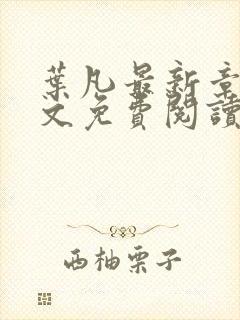 葉凡最新章
文免費閱讀
西柚栗子